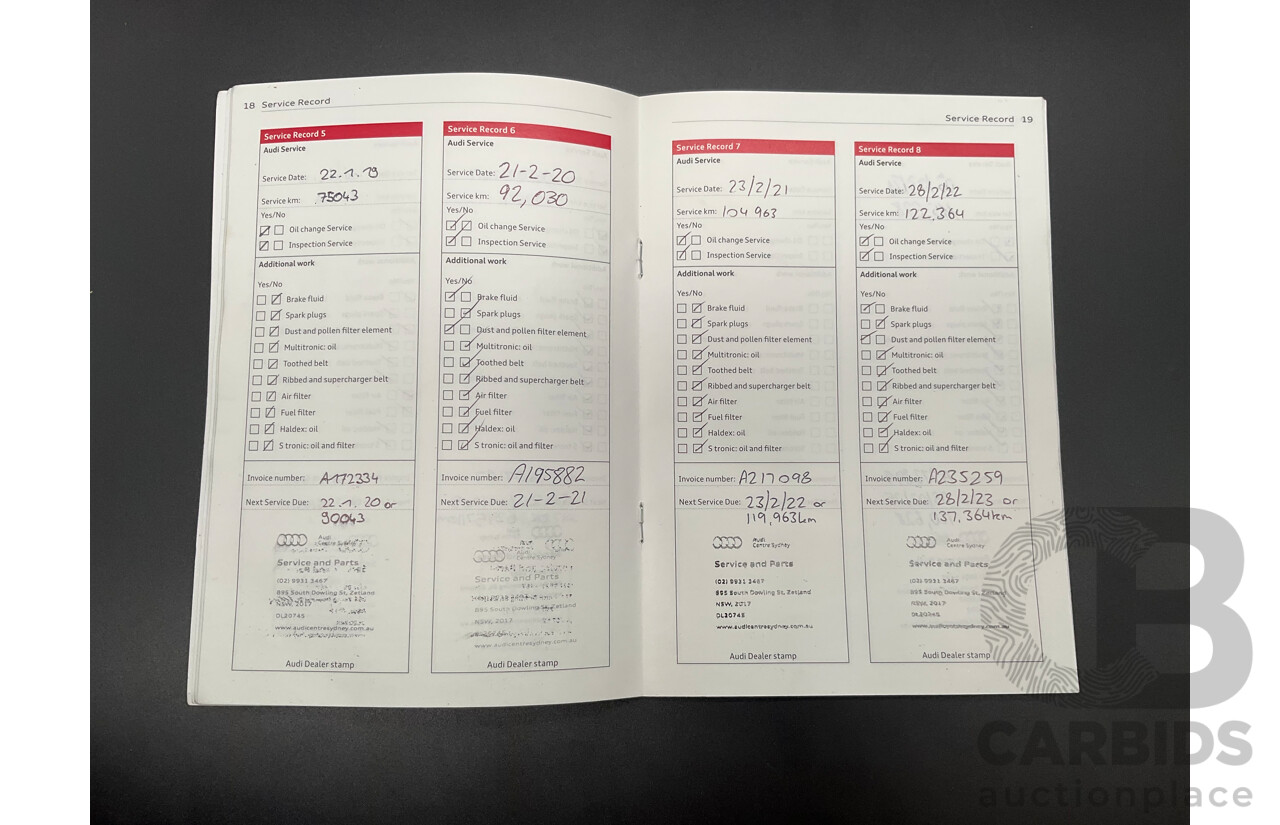 18 Service Record
Service Record 5
Audi Service
Service Date: 22.1.19
Service km: 75043
Yes/No
Oil change Service
Inspection Service
Additional work
Yes/No
Brake fluid
Spark plugs
Dust and pollen filter element
Multitronic: oil
Toothed belt
Ribbed and supercharger belt
Air filter
Fuel filter
Haldex: oil
S tronic: oil and filter
Invoice number: A172334
Next Service Due: 22.1.20 or
90043
Audi
Centre Sydney
Service and Parts
(02) 9931 3467
895 South Dowling St, Zetland
NSW, 2017
DL20745
www.audicentresydney.com.au
Audi Dealer stamp
Service Record 6
Audi Service
Service Date: 21-2-20
Service km: 92,030
Yes/No
Oil change Service
Inspection Service
Additional work
Yes/No
Brake fluid
Spark plugs
Dust and pollen filter element
Multitronic: oil
Toothed belt
Ribbed and supercharger belt
Air filter
Fuel filter
Haldex: oil
S tronic: oil and filter
Invoice number: A195882
Next Service Due: 21-2-21
Audi
Centre Sydney
Service and Parts
895 South Dowling St, Zetland
NSW, 2017
www.audicentresydney.com.au
Audi Dealer stamp
Service Record 19
Service Record 7
Audi Service
Service Date: 23/2/21
Service km: 104 963
Yes/No
Oil change Service
Inspection Service
Additional work
Yes/No
Brake fluid
Spark plugs
Dust and pollen filter element
Multitronic: oil
Toothed belt
Ribbed and supercharger belt
Air filter
Fuel filter
Haldex: oil
S tronic: oil and filter
Invoice number: A217098
Next Service Due: 23/2/22 or
119,963km
Audi
Centre Sydney
Service and Parts
(02) 9931 3467
895 South Dowling St, Zetland
NSW, 2017
DL20745
www.audicentresydney.com.au
Audi Dealer stamp
Service Record 8
Audi Service
Service Date: 28/2/22
Service km: 122,364
Yes/No
Oil change Service
Inspection Service
Additional work
Yes/No
Brake fluid
Spark plugs
Dust and pollen filter element
Multitronic: oil
Toothed belt
Ribbed and supercharger belt
Air filter
Fuel filter
Haldex: oil
S tronic: oil and filter
Invoice number: A235259
Next Service Due: 28/2/23 or
137,364km
Audi
Centre Sydney
Service and Parts
(02) 9931 3467
895 South Dowling St, Zetland
NSW, 2017
DL20745
www.audicentresydney.com.au
Audi Dealer stamp
CB
CARBIDS
auctionplace